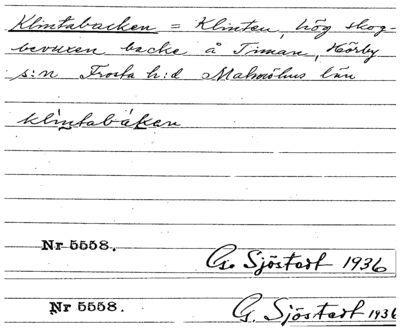 Klintabacken = Klinten, hög skog-
bevuxen backe å Timan, Hörby
s:n Frosta h:d Malmöhus län
klintabáken
Nr 5558.
G. Sjöstedt 1936
Nr 5558.
G. Sjöstedt 1936